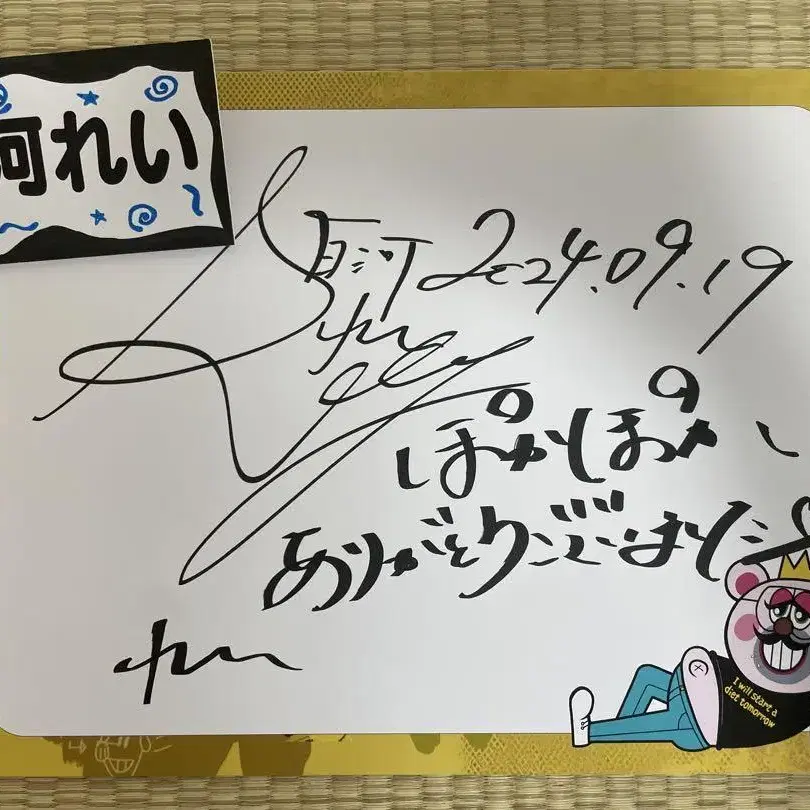 河れい
白河 2024.09.19
れい
ぽかぽか
ありがとうございました
れい
I will start a
diet tomorrow